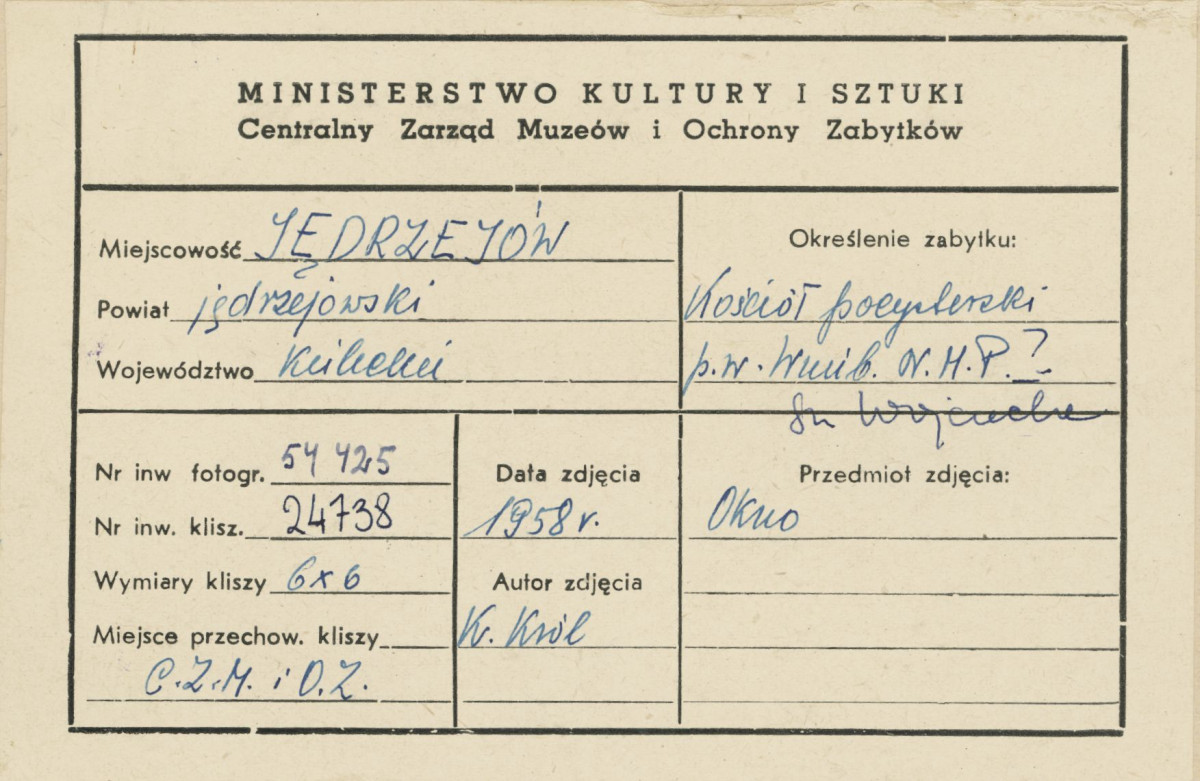 MINISTERSTWO KULTURY I SZTUKI
Centralny Zarząd Muzeów i Ochrony Zabytków
Miejscowość JĘDRZEJÓW
Powiat jędrzejowski
Województwo kielecki
Określenie zabytku:
Kościół pocysterski
p.w. Wnieb. N.M.P.?
Św Wojciecha
Nr inw fotogr. 54 425
Nr inw. klisz. 24738
Wymiary kliszy 6x6
Miejsce przechow. kliszy
C.Z.M. i O.Z.
Data zdjęcia
1958 r.
Autor zdjęcia
K. Król
Przedmiot zdjęcia:
Okno